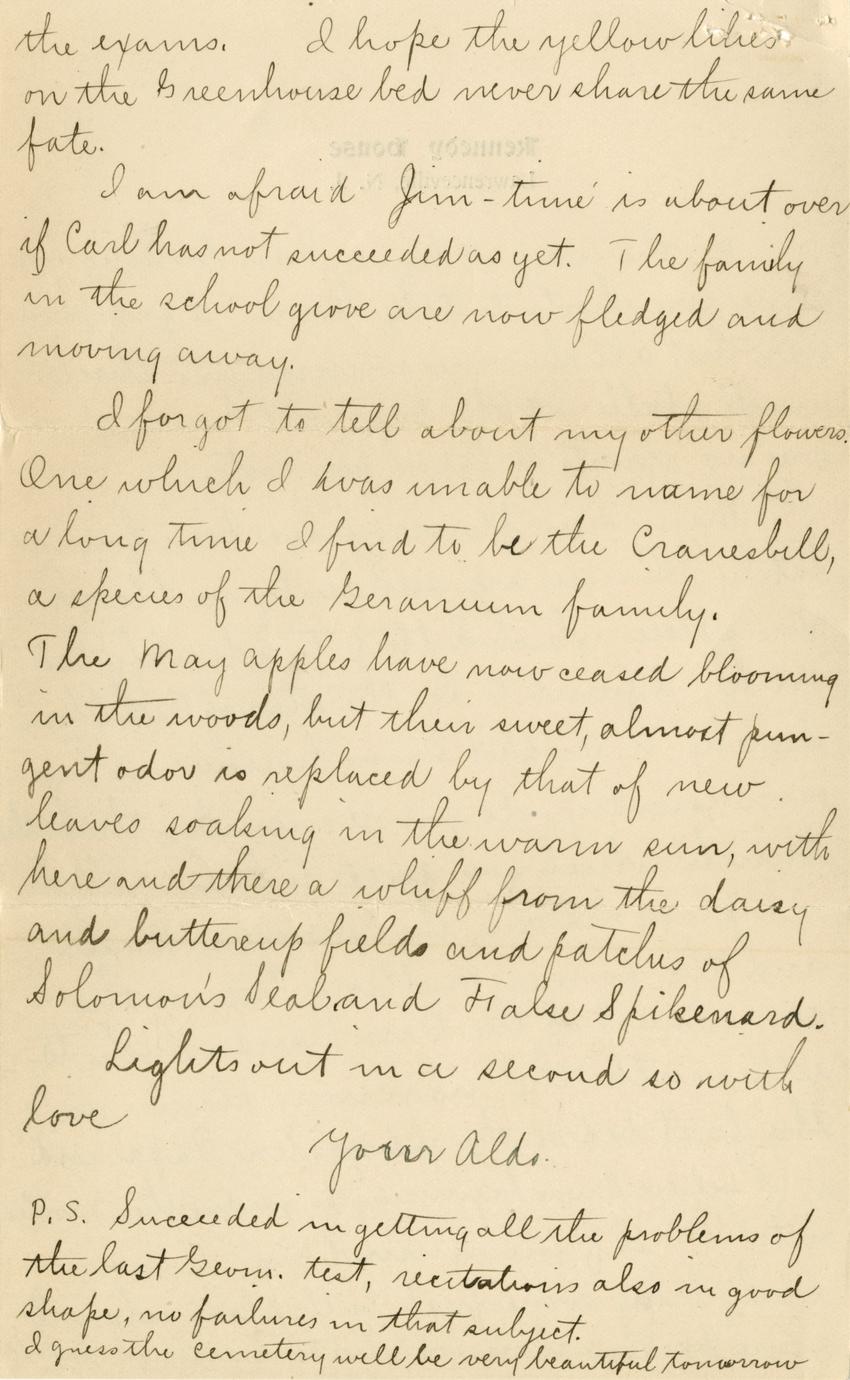 the exams. I hope the yellow lilies
on the Greenhouse bed never share the same
fate.
Kennedy House
Lawrenceville, N. J.
I am afraid Jim-time is about over
if Carl has not succeeded as yet. The family
in the school grove are now fledged and
moving away.
I forgot to tell about my other flowers.
One which I was unable to name for
a long time I find to be the Cranesbill,
a species of the Geranium family.
The May apples have now ceased blooming
in the woods, but their sweet, almost pun-
gent odor is replaced by that of new
leaves soaking in the warm sun, with
here and there a whiff from the daisy
and buttercup fields and patches of
Solomon's Seal and False Spikenard.
Lights out in a second so with
love
Your Aldo.
P. S. Succeeded in getting all the problems of
the last Geom. test, recitations also in good
shape, no failures in that subject.
I guess the cemetery will be very beautiful tomorrow